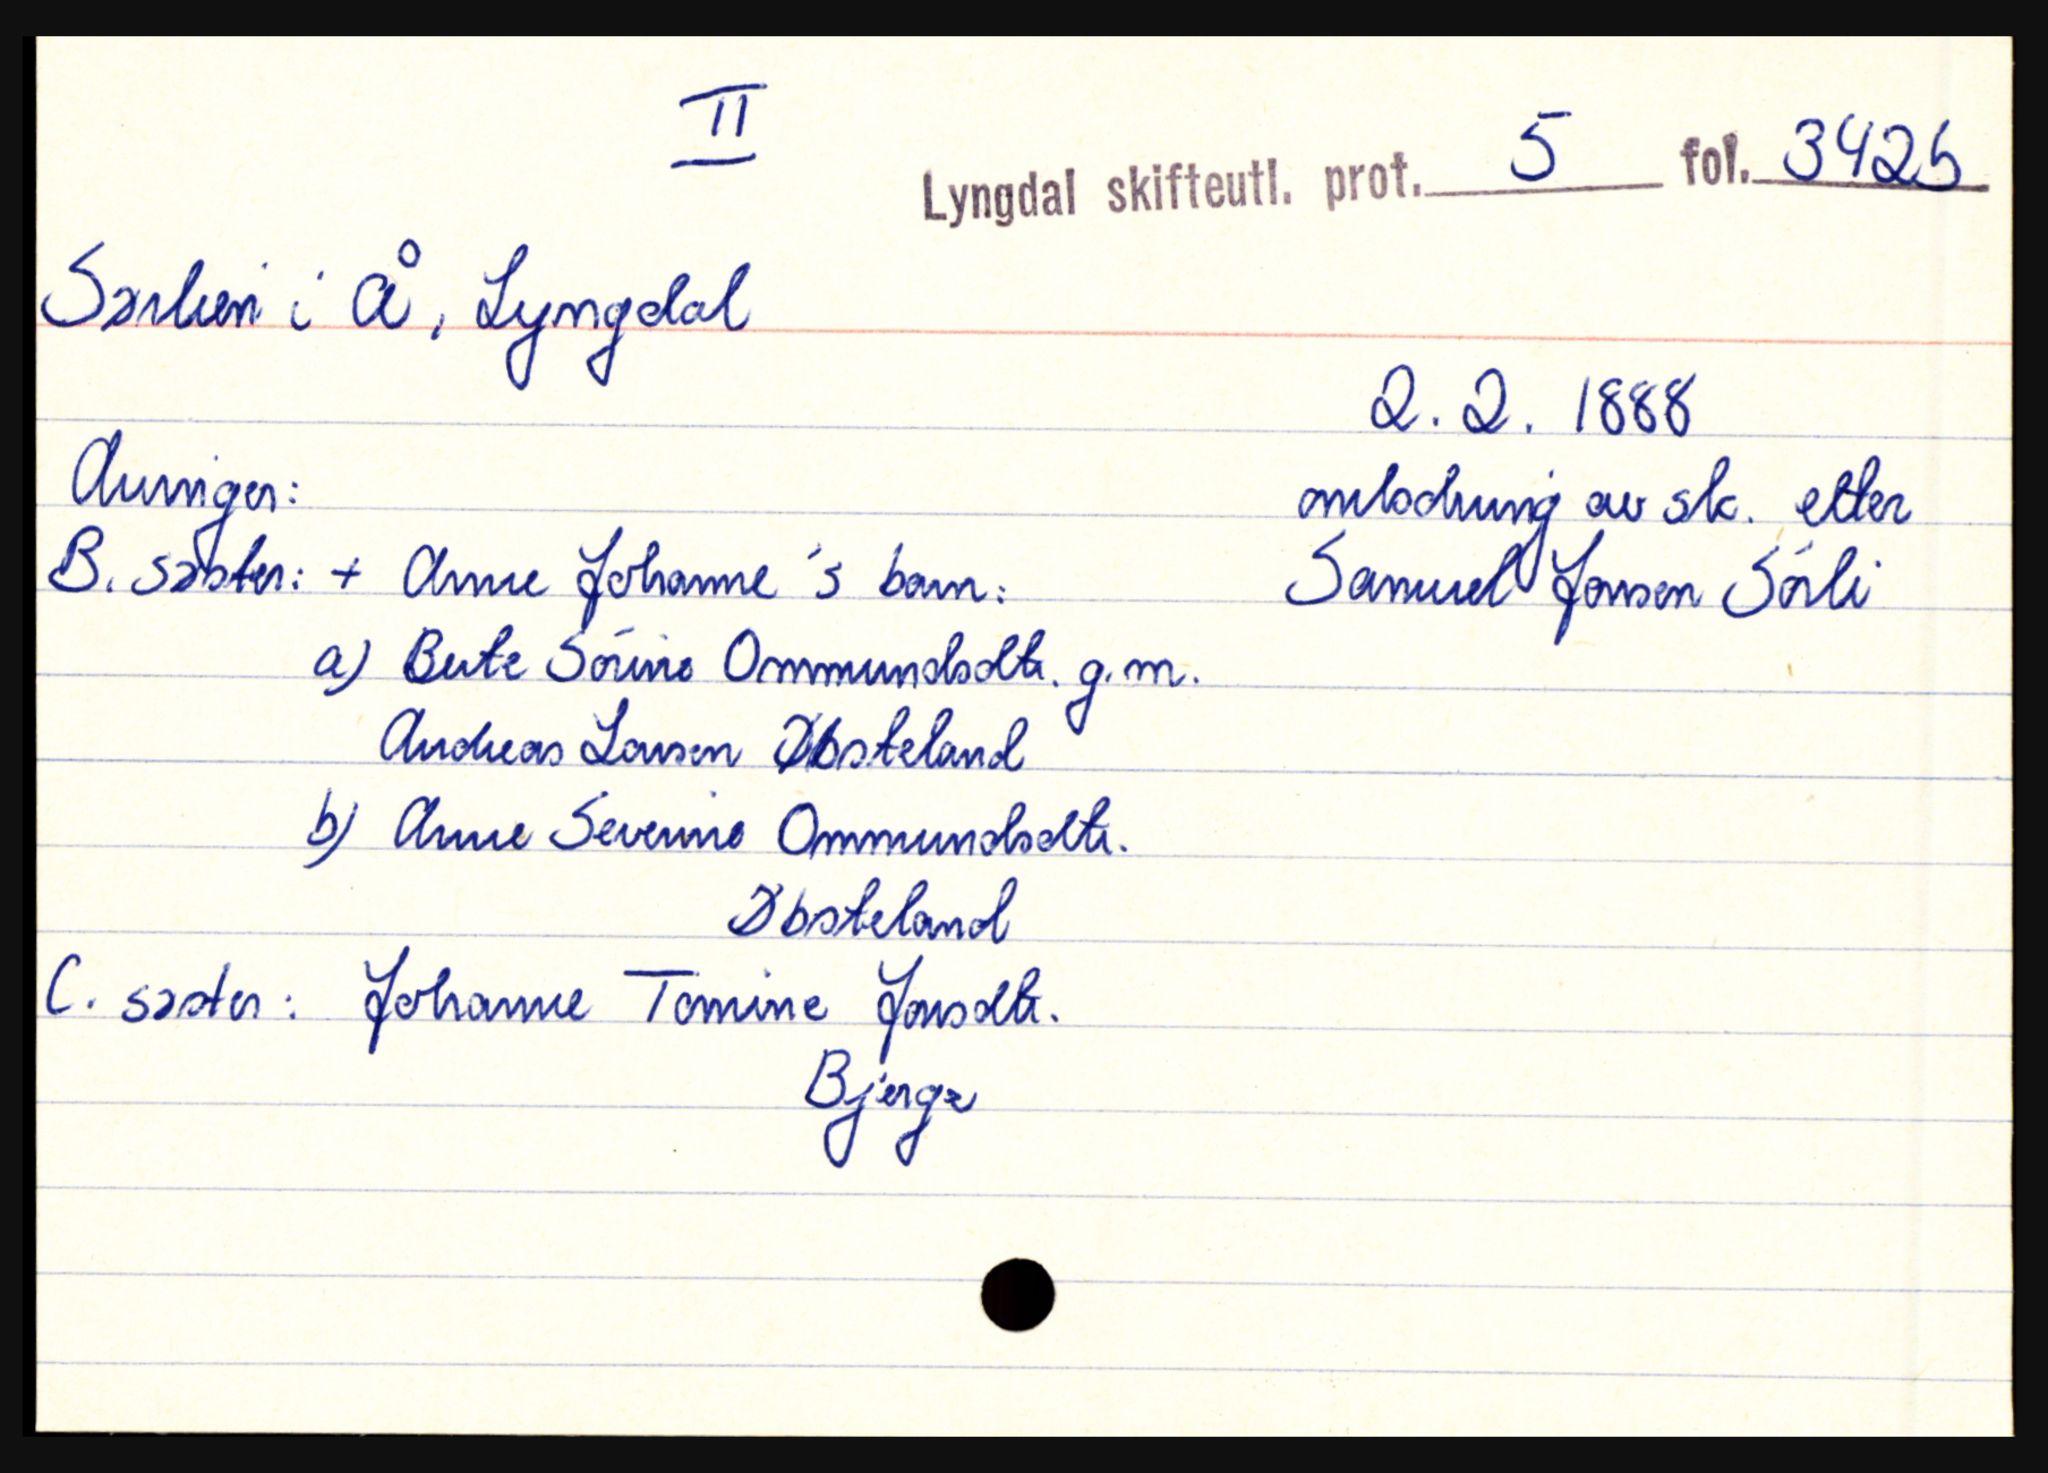 II
Lyngdal skifteutl. prot. 5 fol. 342b
Sørlien i Å, Lyngdal
2. 2. 1888
Arvinger:
omlodning av sk. etter
B. søster: + Anne Johanne's barn:
Samuel Jonsen Sörli
a) Berte Sörine Ommundsdtr. g.m.
Andreas Larsen Øbsteland
b) Anne Severine Ommundsdtr.
Øbsteland
C. søster: Johanne Tomine Jonsdtr.
Bjerge